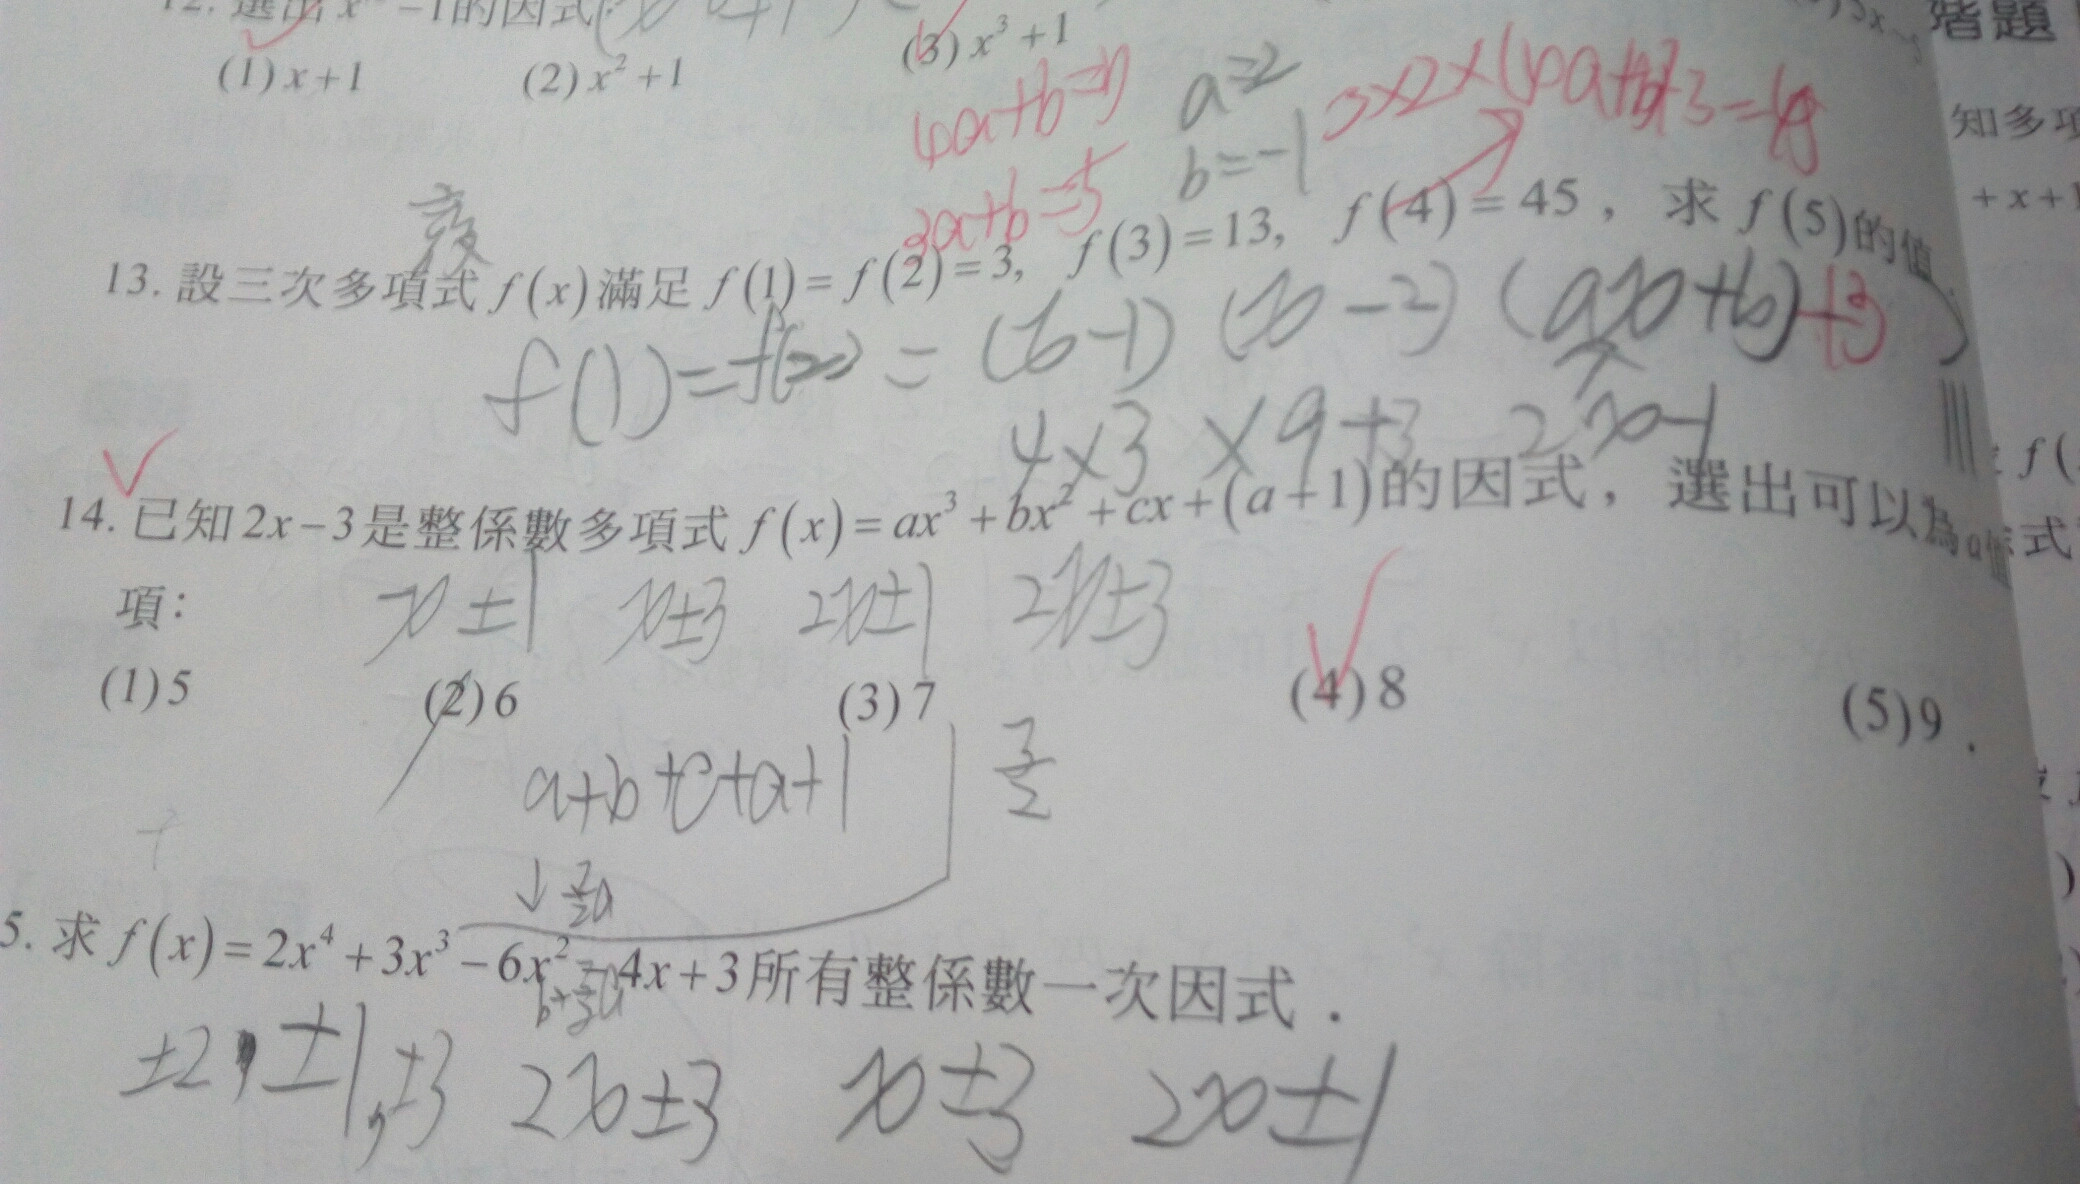 12. 選出x −1的因式
(1) x+1 (2) x²+1 (3) x³+1
4a+b=7 a=2 3×2×(4a+b)+3=45
3a+b=5 b=-1
13. 設三次多項式 f(x) 滿足 f(1)=f(2)=3, f(3)=13, f(4)=45, 求 f(5)的值
f(1)=f(2)=(x-1)(x-2)(ax+b)+3
4×3×9+3 2x-1
14. 已知2x−3是整係數多項式 f(x)=ax³+bx²+cx+(a+1)的因式, 選出可以為a值
項:
x±1 x±3 2x±1 2x±3
(1) 5 (2) 6 (3) 7 (4) 8 (5) 9.
a+b+c+a+1 3/2
↓ 3/2a
5. 求 f(x)=2x⁴+3x³−6x²−4x+3所有整係數一次因式.
b+3/2a
±2, ±1, ±3 2x±3 x±3 2x±1
階題
知多項
+x+1
f(
式